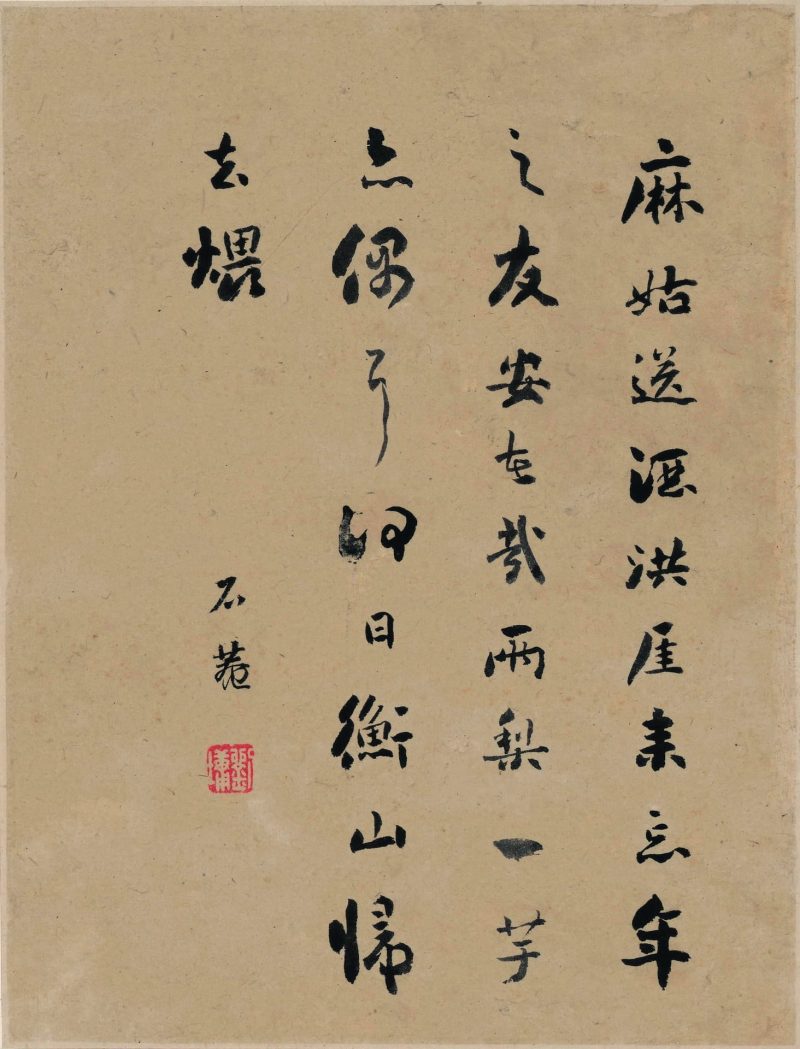 麻姑送酒洪厓來忘年
之友安在哉兩梨一芋
亦偶耳何日衡山歸
去煨
石菴
劉墉